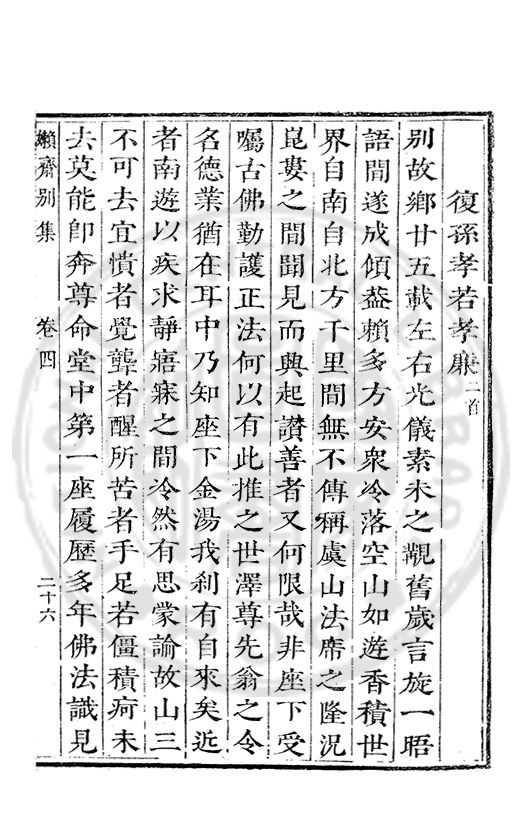 復孫孝若孝廉二首
別故鄉廿五載左右光儀素未之覩舊歲言旋一晤
語間遂成傾葢賴多方安衆冷落空山如遊香積世
界自南自北方千里間無不傳稱虞山法席之隆況
崑婁之間聞見而興起讃善者又何限哉非座下受
囑古佛勤護正法何以有此推之世澤尊先翁之令
名德業猶在耳中乃知座下金湯我刹有自來矣近
者南遊以疾求靜寤寐之間冷然有思蒙諭故山三
不可去宜憒者覺聾者醒所苦者手足若僵積疴未
去莫能卽奔尊命堂中第一座履歷多年佛法識見
嬾齋别集
卷四
二十六